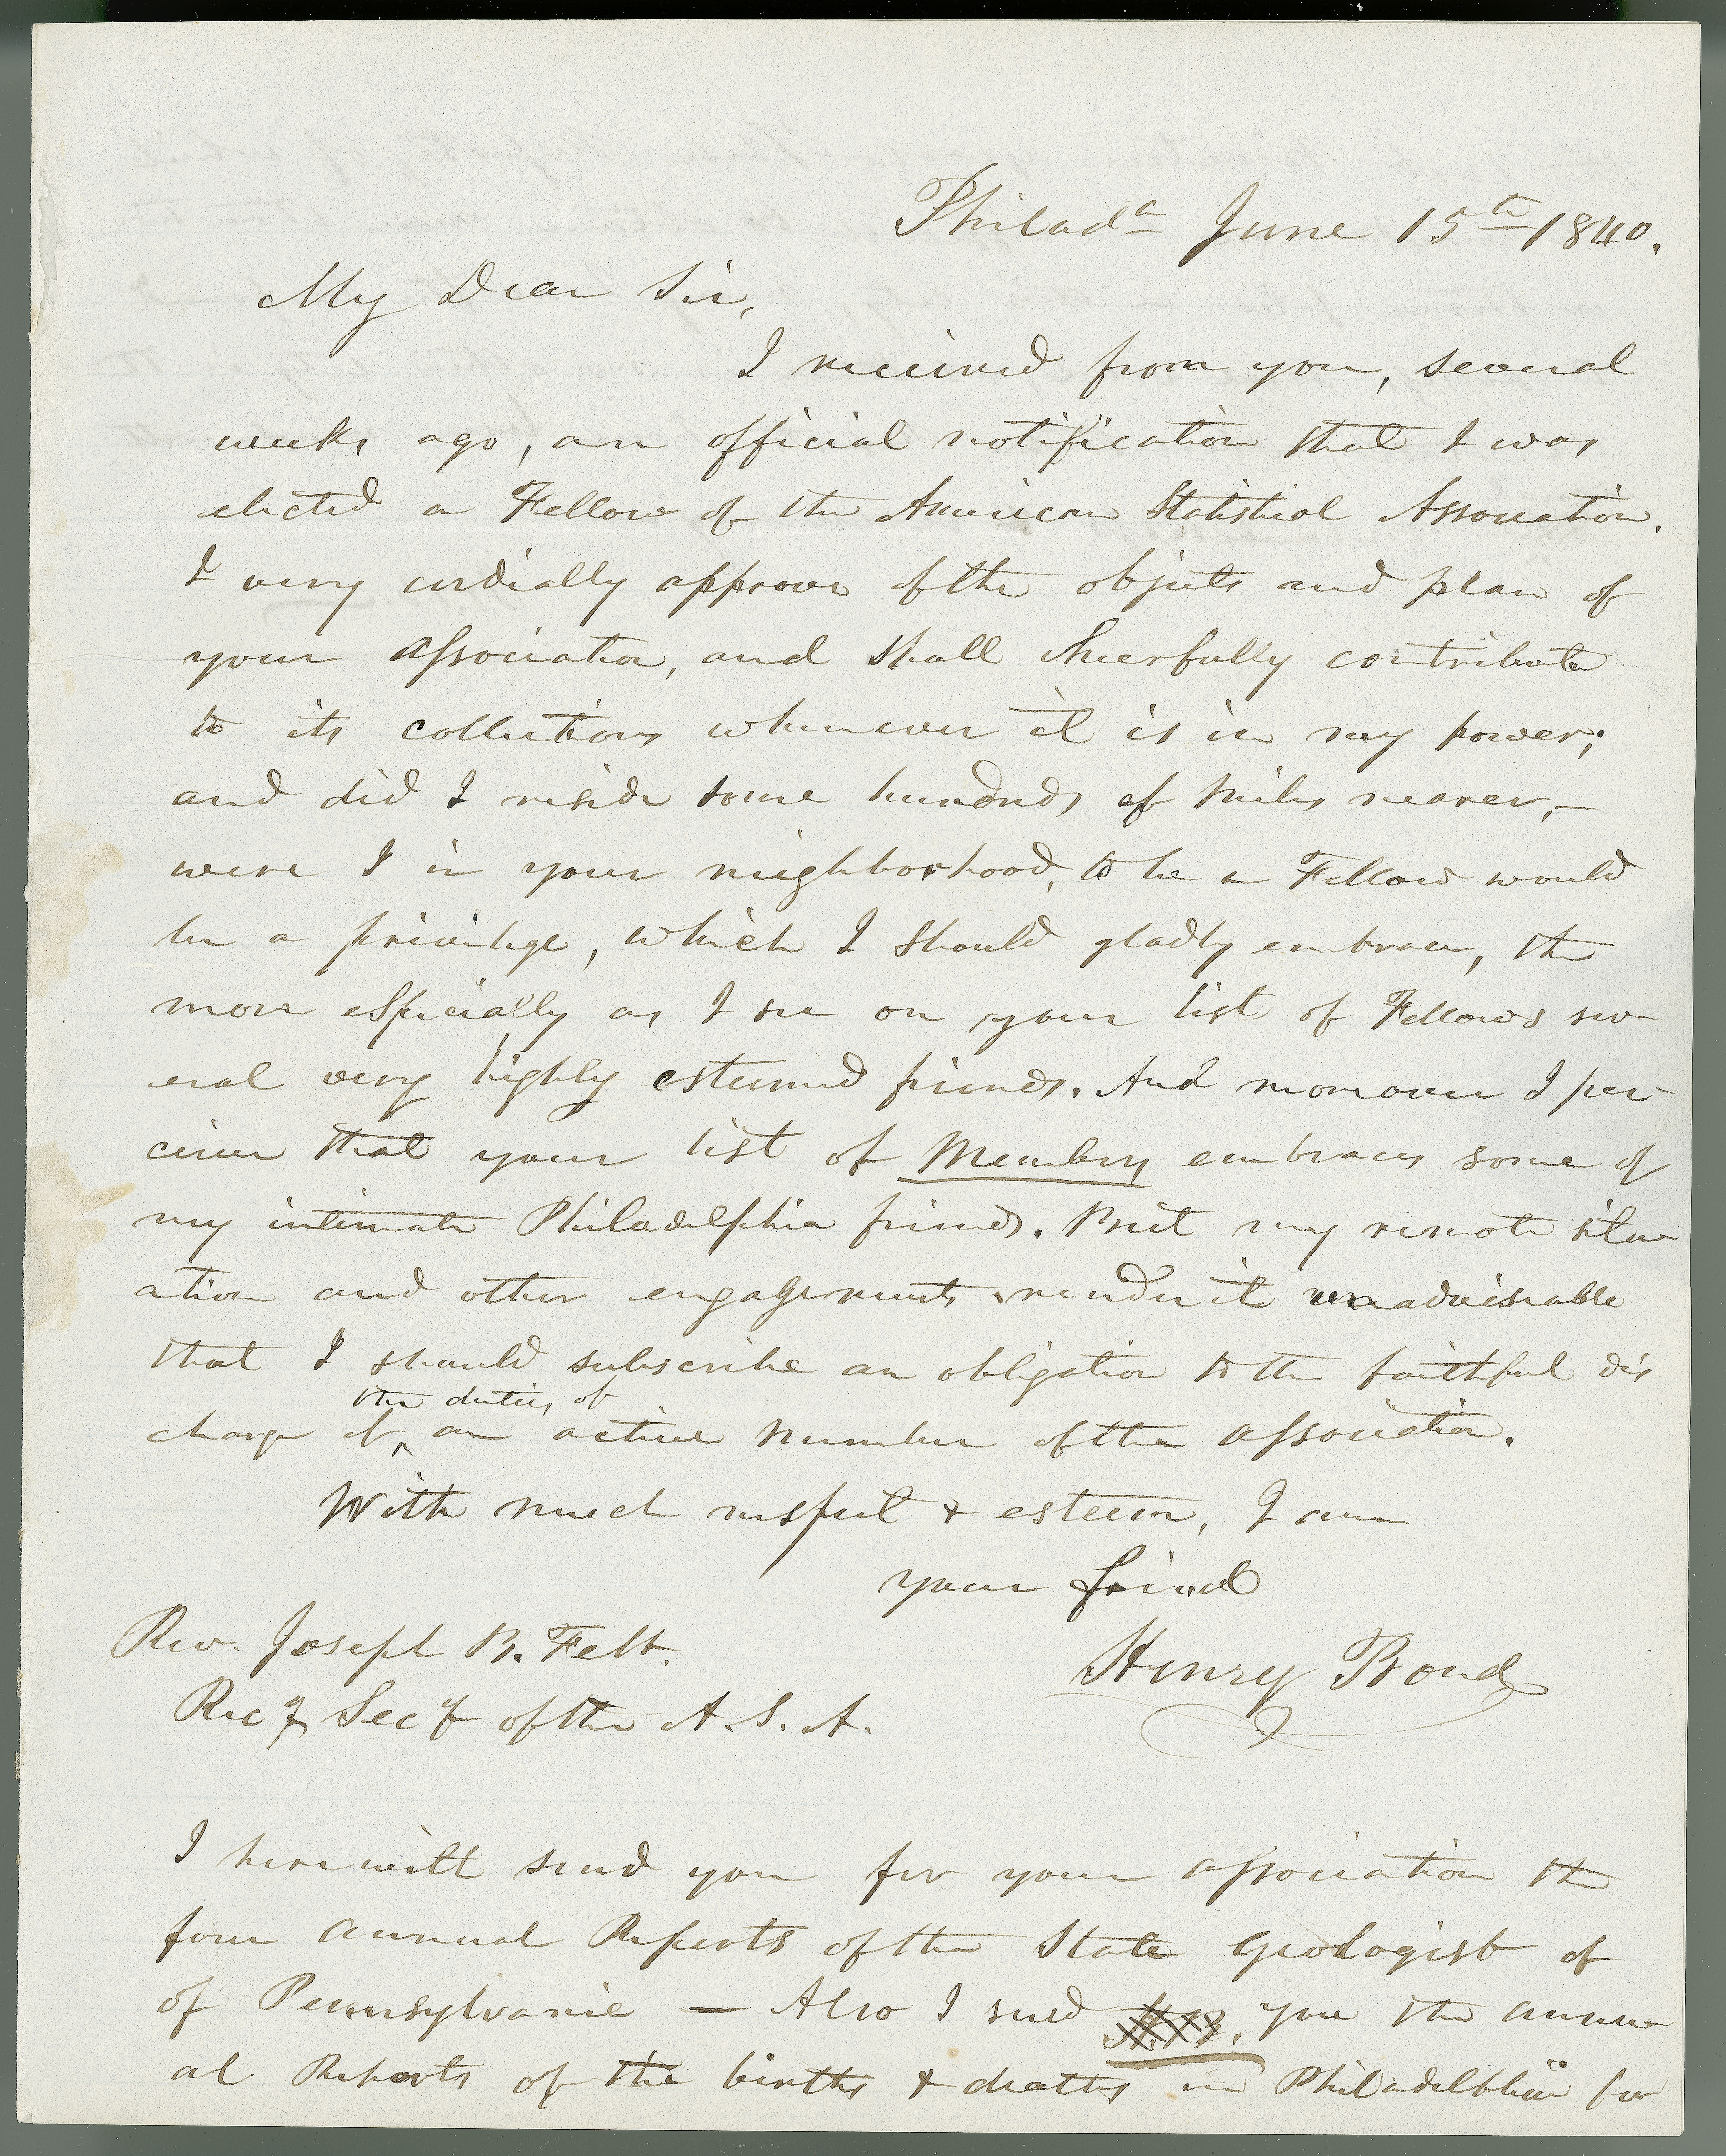 Philad^a June 15th 1840.
My Dear Sir,
I received from you, several
weeks ago, an official notification that I was
elected a Fellow of the American Statistical Association.
I very cordially approve of the objects and plan of
your Association, and shall cheerfully contribute
to its collections whenever it is in my power;
and did I reside some hundreds of miles nearer,—
were I in your neighborhood, to be a Fellow would
be a privilege, which I should gladly embrace, the
more especially as I see on your list of Fellows sev-
eral very highly esteemed friends. And moreover I per-
ceive that your list of Members embraces some of
my intimate Philadelphia friends. But my remote situ-
ation and other engagements render it unadviseable
that I should subscribe an obligation to the faithful dis
the duties of
charge of ^ an active member of the association.
With much respect & esteem, I am
your friend
Henry Bond
Rev. Joseph B. Felt.
Recg Secy of the A. S. A.
I herewith send you for your association the
four annual Reports of the State Geologist of
of Pennsylvania — Also I send you the annu-
al Reports of the births & deaths in Philadelphia for